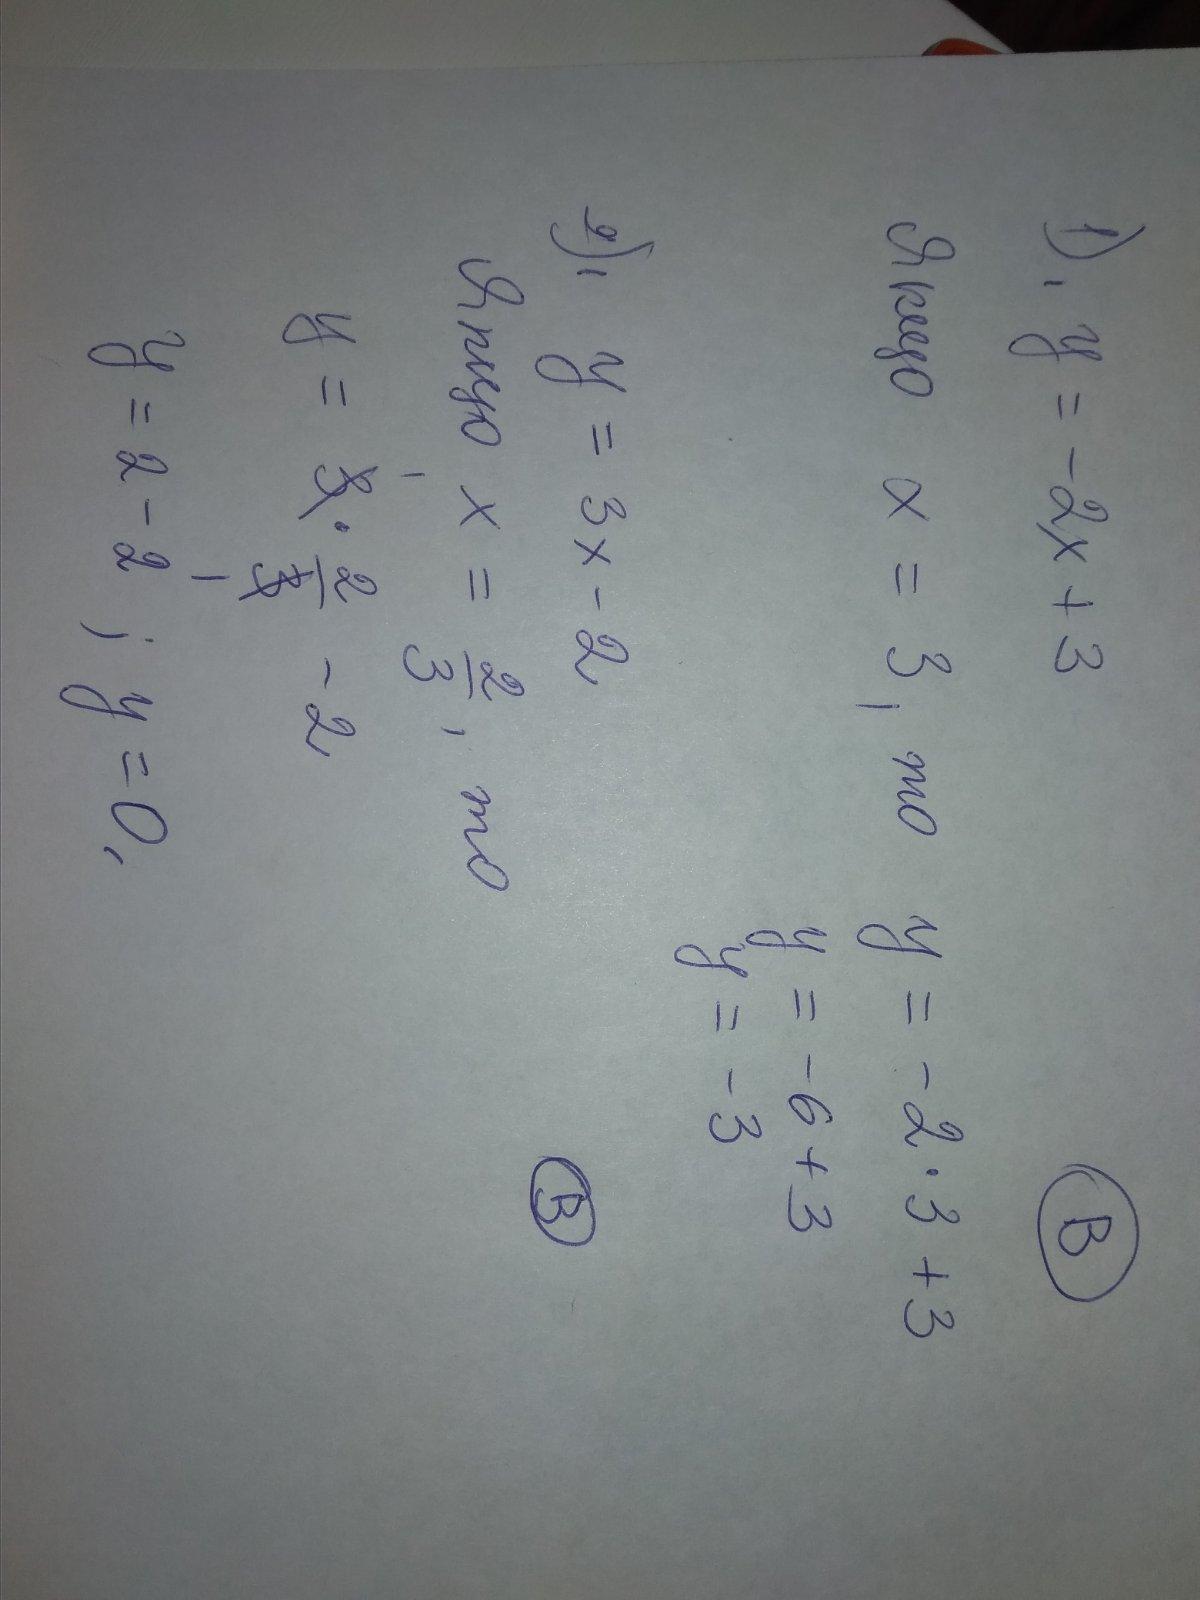 1). y = -2x + 3 В
Якщо x = 3, то y = -2·3+3
y = -6+3
y = -3
2). y = 3x - 2 В
Якщо x = 2/3, то
y = 3 · 2/3 - 2
y = 2 - 2; y = 0.